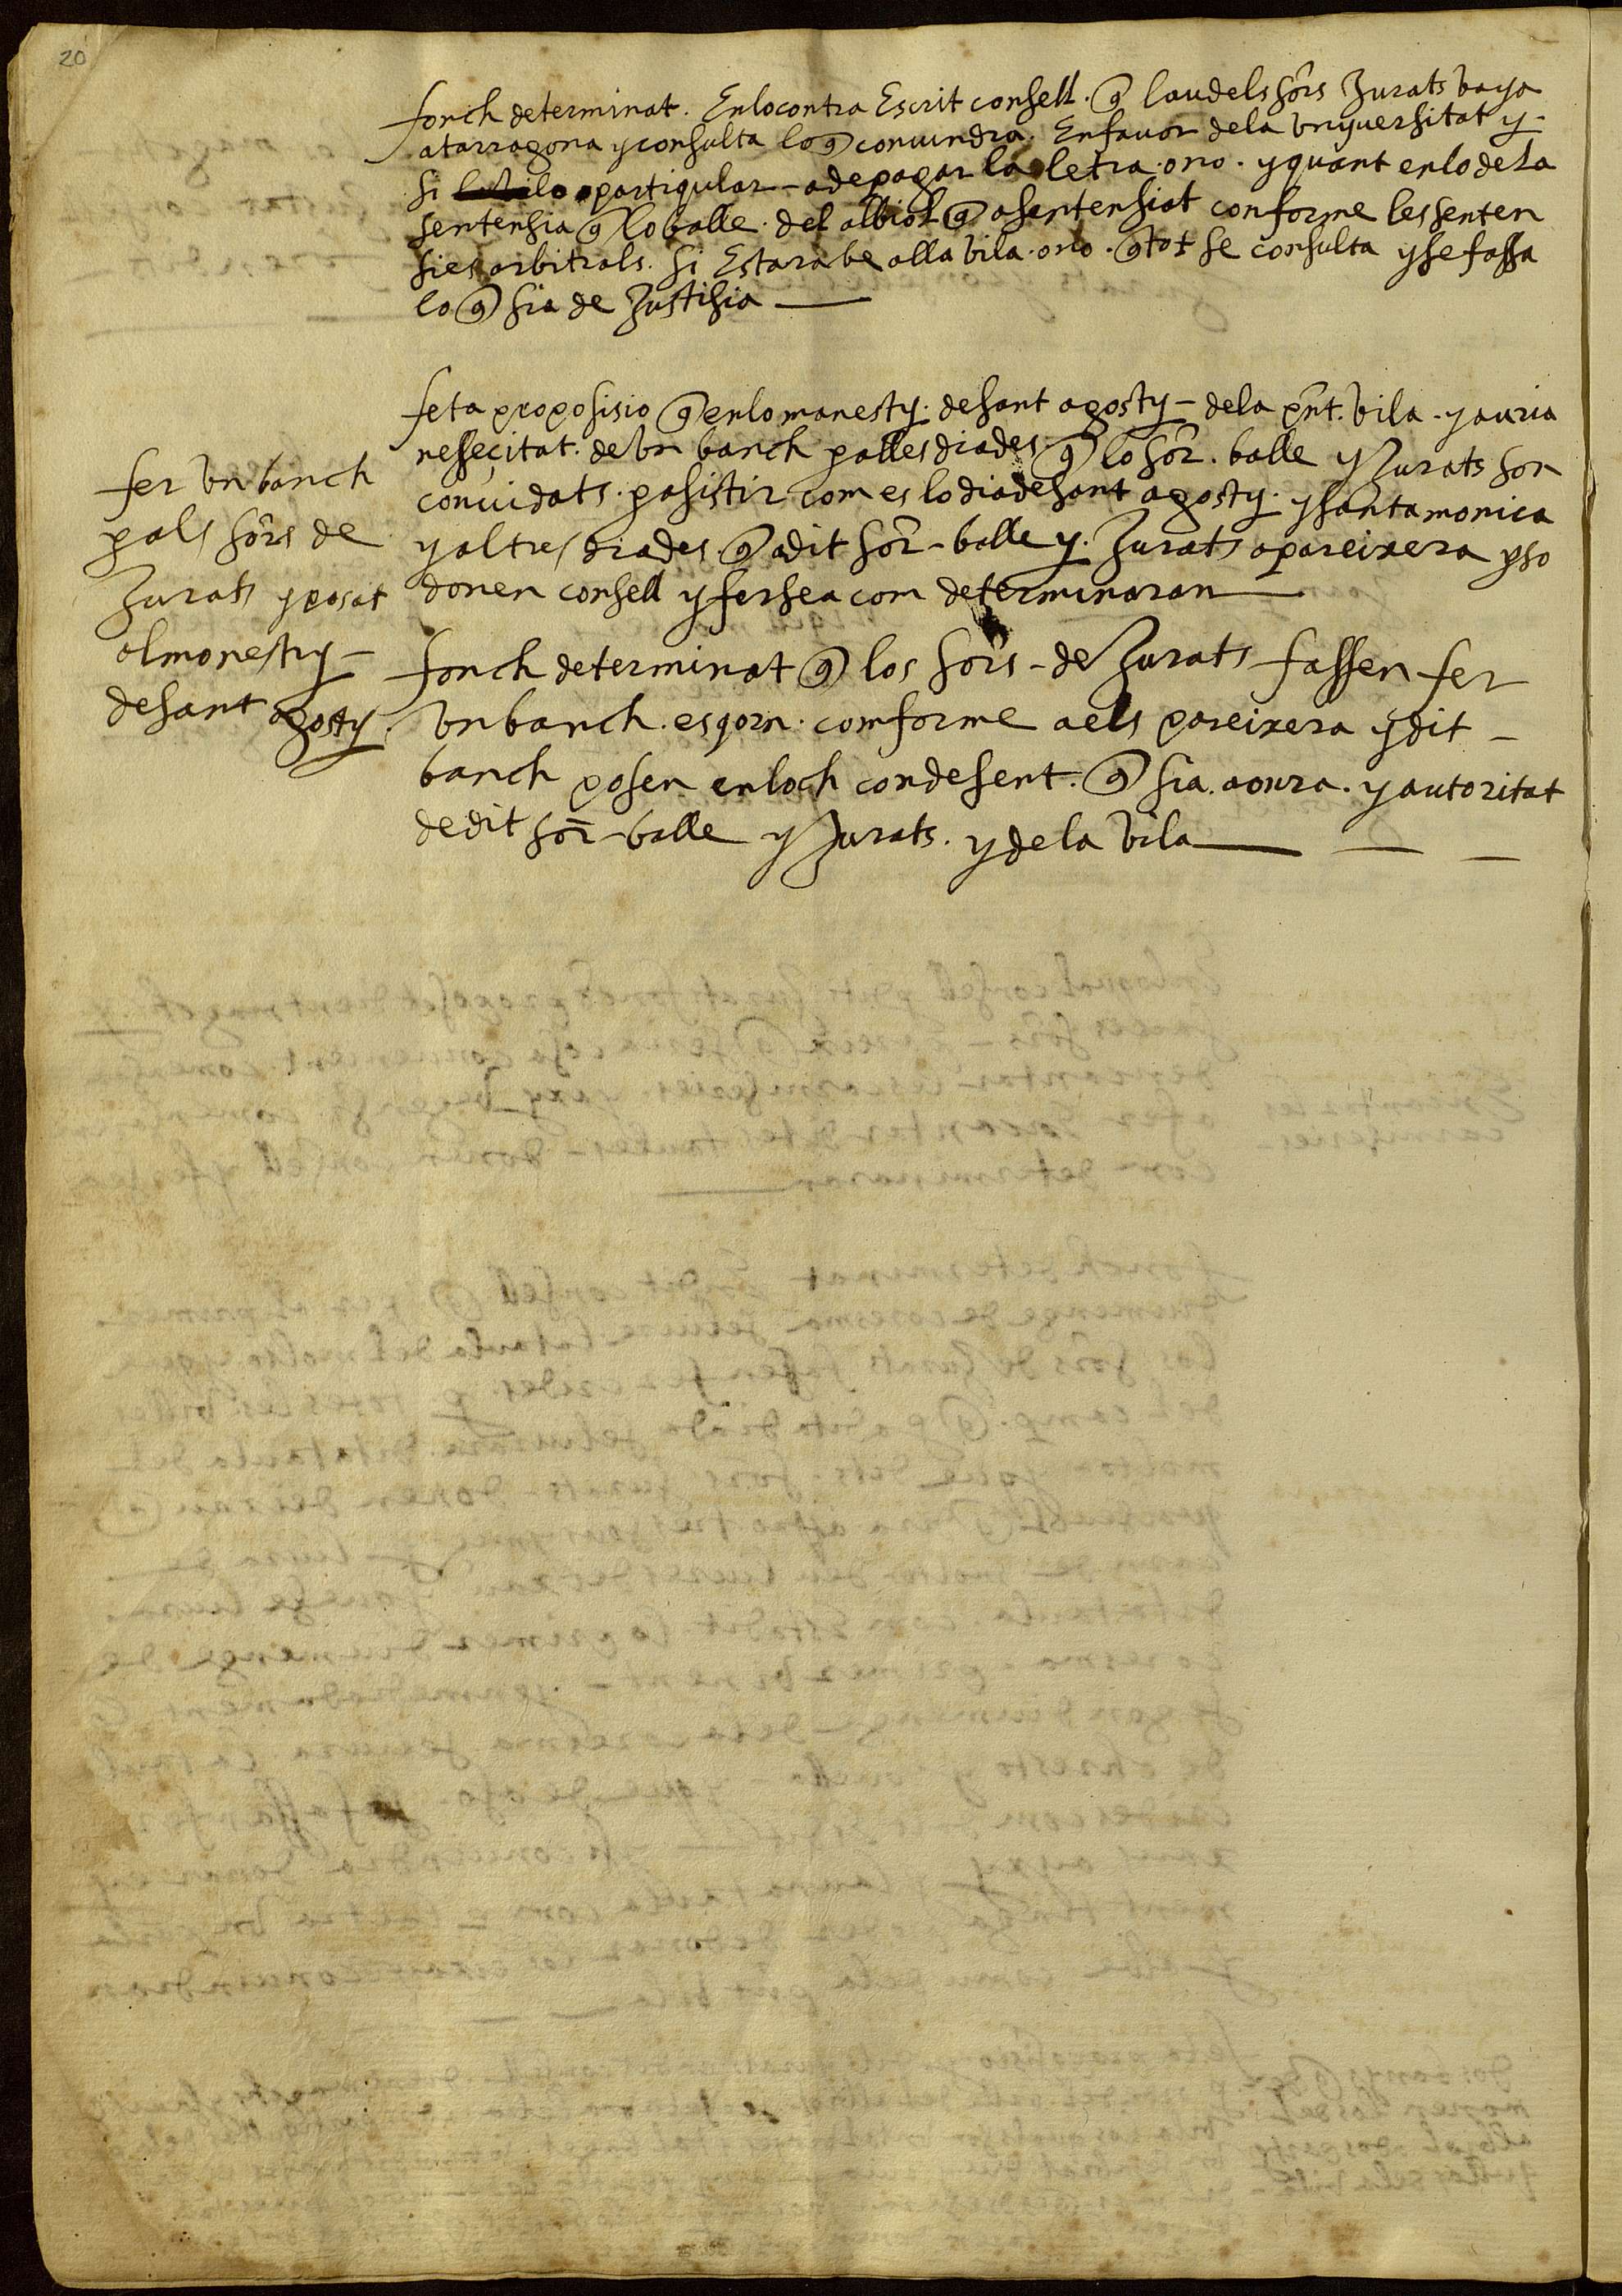 20
fonch determinat. Enlocontra Escrit consell. q̃ laudels sõrs Jurats vaya
atarragona y consulta lo q̃ convindra. Enfavor dela vnyversitat y.
si lo partiqular - adepagar la letra. ono. y quant enlodela
sentensia q̃ lo balle. del albiol q̃ asentensiat conforme les senten
sies arbitrals. si Estara be alla vila. ono. q̃ tot se consulta y se fassa
lo q̃ sia de Justisia
feta proposisio q̃ enlo monesty. desant agosty - dela pñt. vila. y auria
nessecitat. de vn banch palles diades q̃ lo sõr. balle y Jurats son
convidats. pasistir. com es lo dia desant agosty. y santa monica
y altres diades. q̃ adit sõr - balle y. Jurats apareixera y so
donen consell y fersea com determinaran
fer vn banch
pals sõrs de
Jurats y posat
al monestry -
desant agosty.
fonch determinat q̃ los sõrs - de Jurats fassen fer
vn banch. esqorn. comforme aels pareixera y dit -
banch posen enloch condesent. q̃ sia. aonra. y autoritat
dedit sõr - balle y Jurats. y dela vila